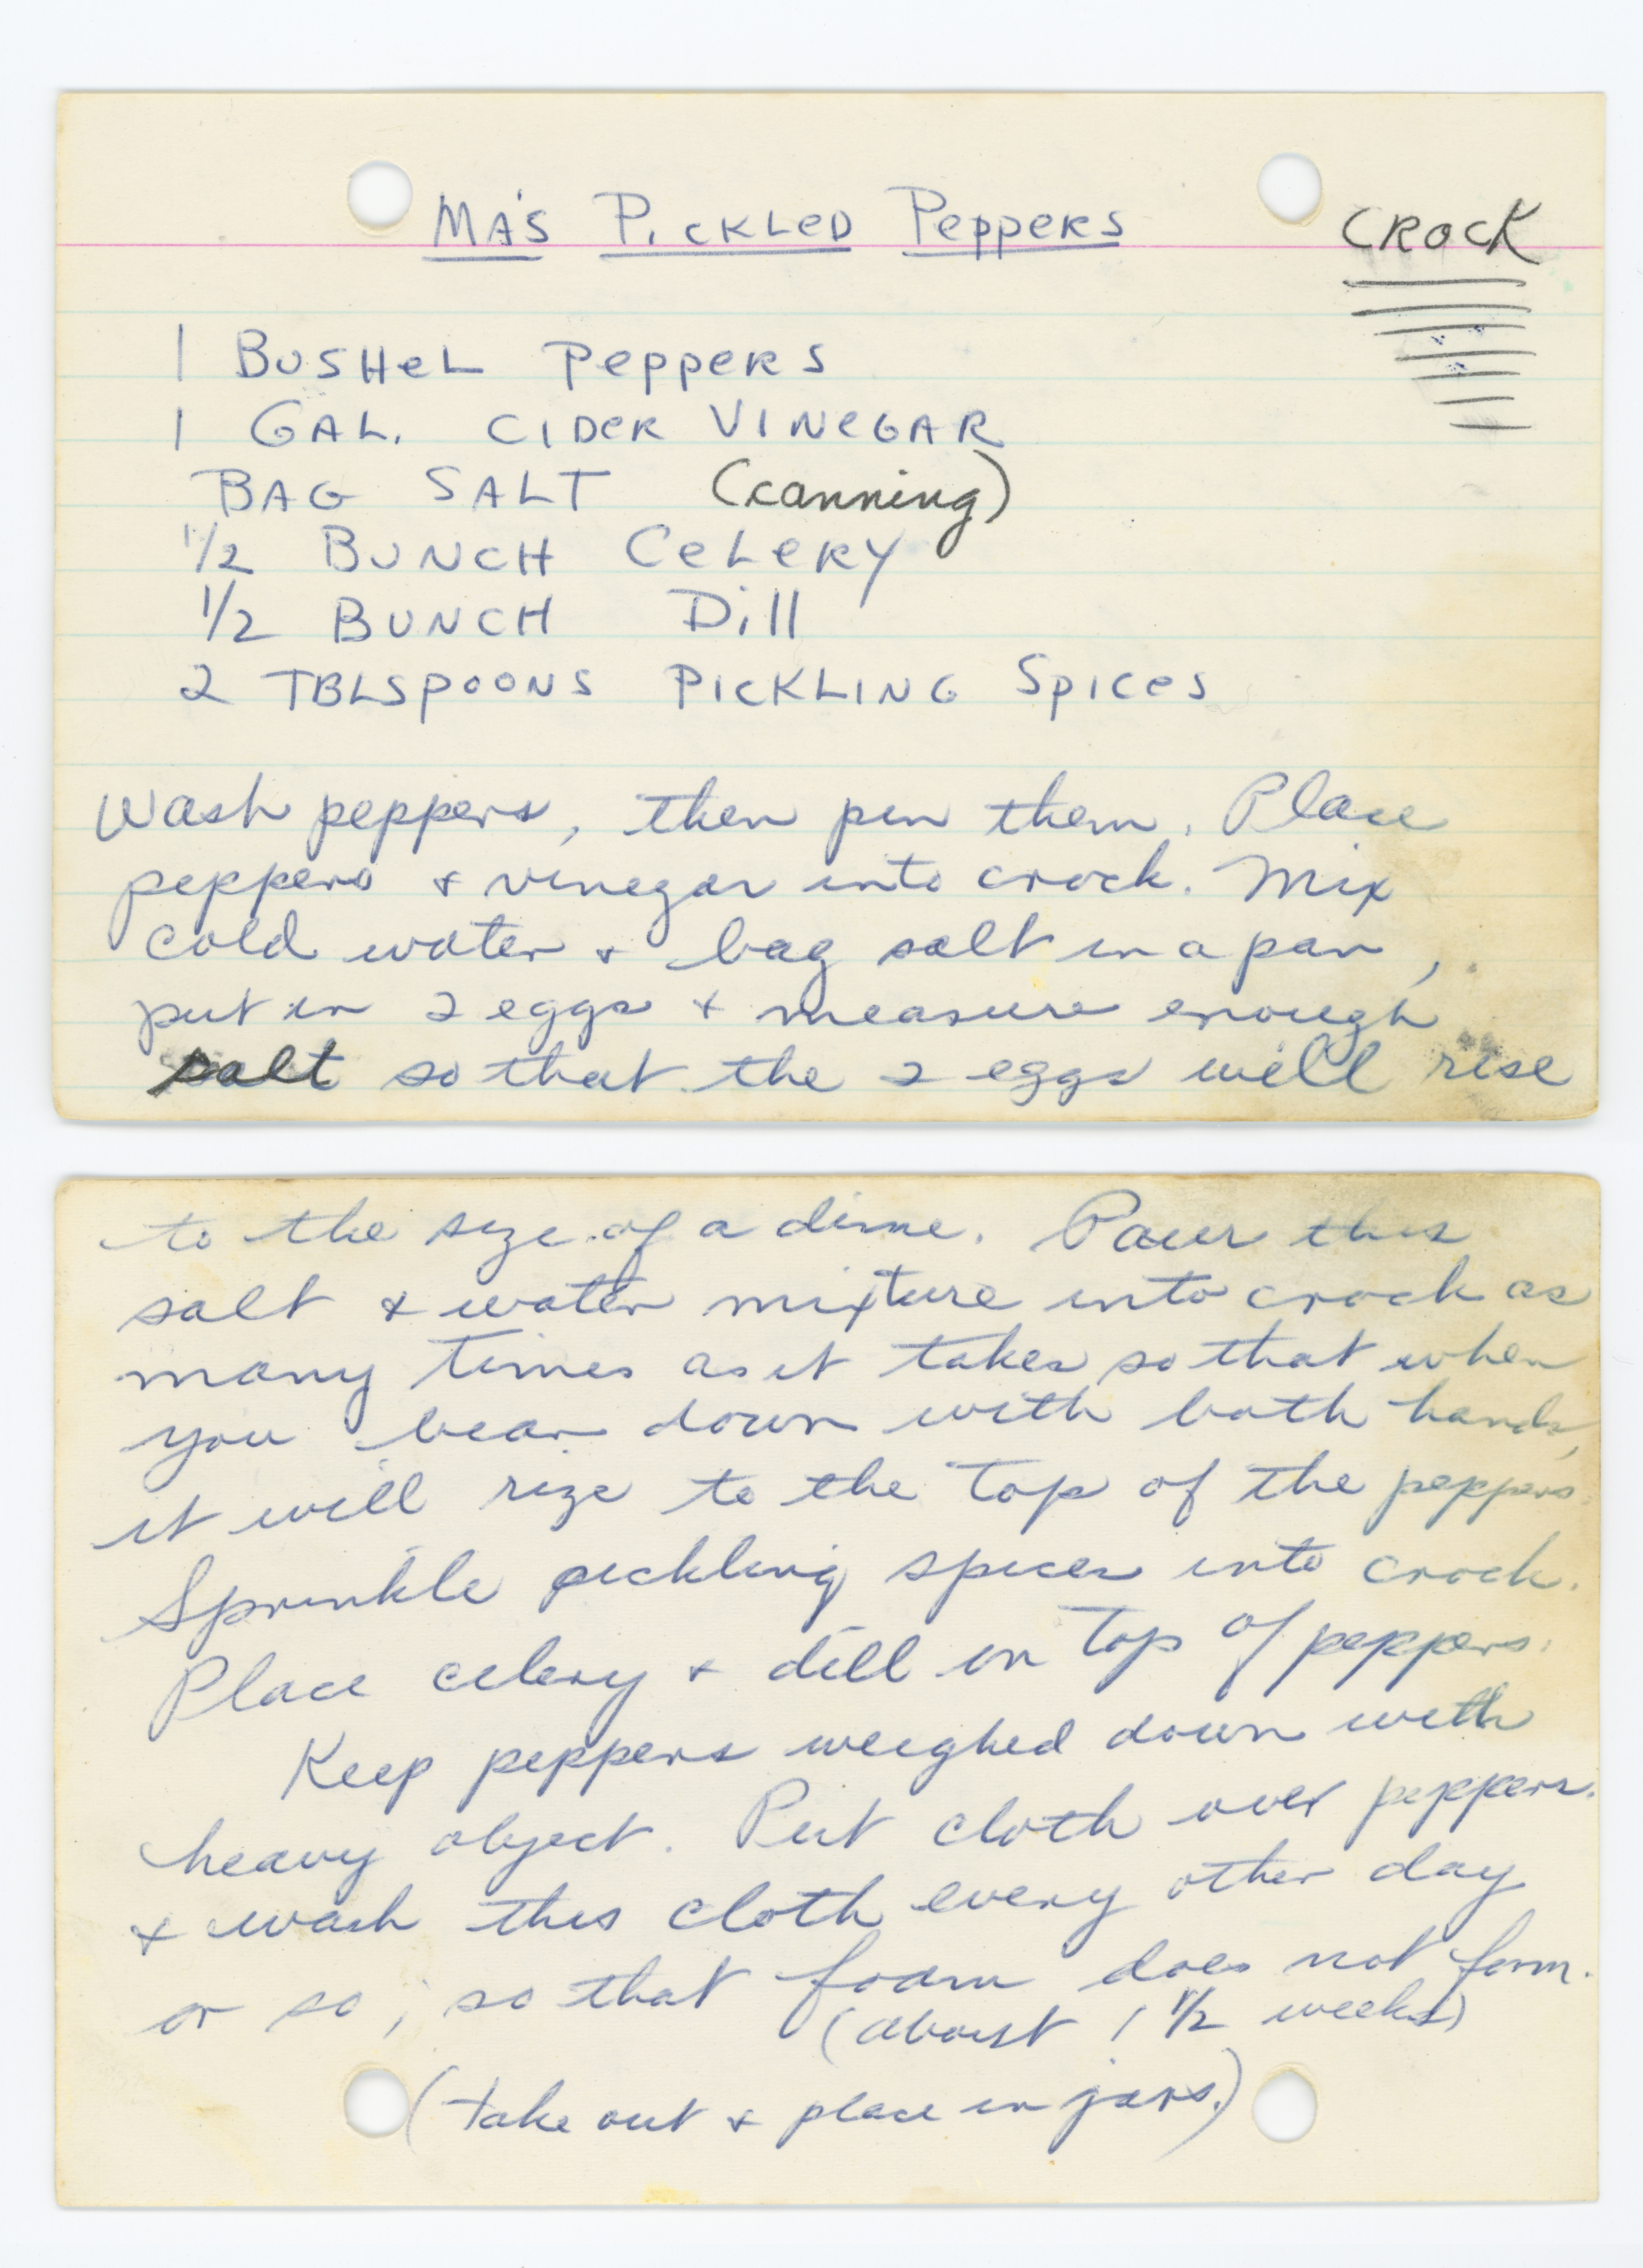 MA'S PICKLED PEPPERS
CROCK
1 BUSHEL PEPPERS
1 GAL. CIDER VINEGAR
BAG SALT (canning)
1/2 BUNCH CELERY
1/2 BUNCH Dill
2 TBLSPOONS PICKLING SPICES
Wash peppers, then pin them. Place
peppers & vinegar into crock. Mix
cold water & bag salt in a pan,
put in 2 eggs & measure enough
salt so that the 2 eggs will rise
to the size of a dime. Pour this
salt & water mixture into crock as
many times as it takes so that when
you bear down with both hands,
it will rize to the top of the peppers.
Sprinkle pickling spices into crock.
Place celery & dill on top of peppers.
Keep peppers weighed down with
heavy object. Put cloth over peppers.
& wash this cloth every other day
or so, so that foam does not form.
(about 1 1/2 weeks)
(take out & place in jars.)